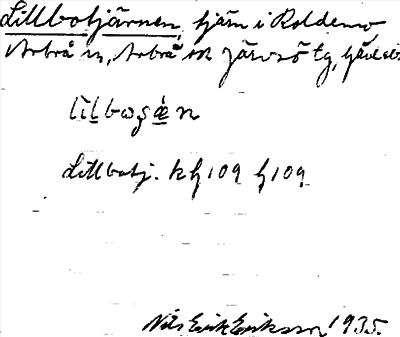 Lillbotjärnen, tjärn i Koldemo
Arbrå sn, Arbrå ok Järvsö tg, Gävlebs
Lillbotj. k h 109 h 109
Nils Erik Eriksson 1935.